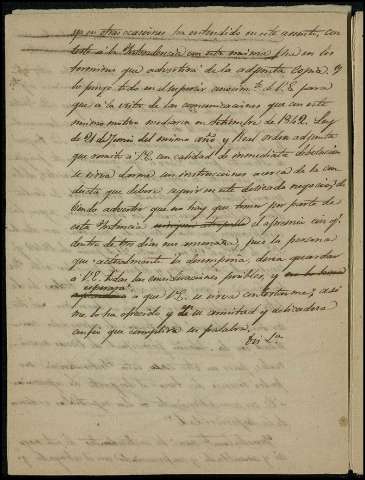 que en otras ocasiones ha entendido en este asunto, con
testé a la Intendencia con esta misma fha en los
terminos que advertirá de la adjunta copia. Y
lo pongo todo en el superior conocim.to de V.E. para
que a la vista de las comunicaciones que con este
mismo motivo mediaron en Setiembre de 1842. Ley
de 21 de Junio del mismo año y Real orden adjunta
que remito a V.E. en calidad de inmediata debolucion
se sirva darme sus instrucciones acerca de la con
ducta que deberé seguir en este delicado negocio; de
biendo advertir que no hay que temer por parte de
esta Intencia el apremio con q.e
dentro de tres dias me amenaza, pues la persona
que actualmente la desempeña, desea guardar
a V.E. todas las consideraciones posibles, y
esperará a que V.E. se sirva contestarme; asi
me lo ha ofrecido y de su amistad y delicadeza
confio que cumplirá su palabra.